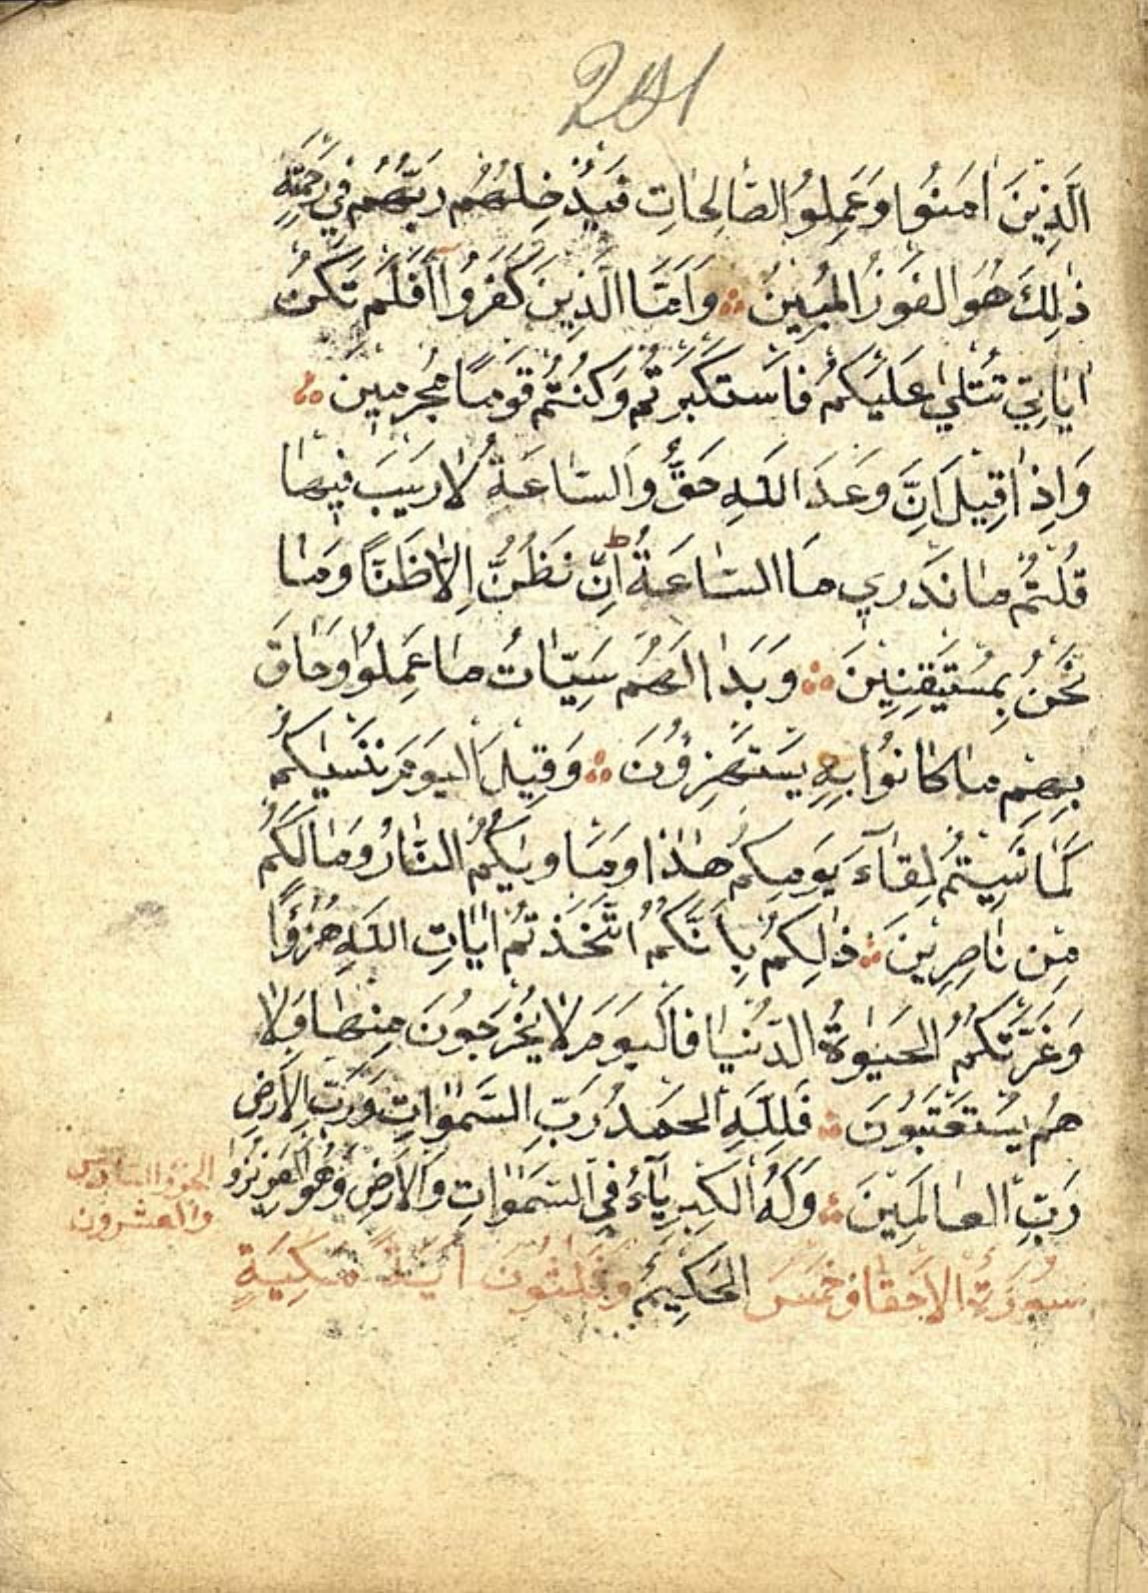 الَّذِينَ اٰمَنُوا وَعَمِلُوا الصَّالِحَاتِ فَيُدْخِلُهُمْ رَبُّهُمْ فِي رَحْمَتِهِ
ذٰلِكَ هُوَ الْفَوْزُ الْمُبِينُ ۞ وَاَمَّا الَّذِينَ كَفَرُوا اَفَلَمْ تَكُنْ
اٰيَاتِي تُتْلٰى عَلَيْكُمْ فَاسْتَكْبَرْتُمْ وَكُنْتُمْ قَوْمًا مُجْرِمِينَ ۞
وَاِذَا قِيلَ اِنَّ وَعْدَ اللّٰهِ حَقٌّ وَالسَّاعَةُ لَا رَيْبَ فِيهَا
قُلْتُمْ مَا نَدْرِي مَا السَّاعَةُ ط اِنْ نَظُنُّ اِلَّا ظَنًّا وَمَا
نَحْنُ بِمُسْتَيْقِنِينَ ۞ وَبَدَا لَهُمْ سَيِّاٰتُ مَا عَمِلُوا وَحَاقَ
بِهِمْ مَا كَانُوا بِهِ يَسْتَهْزِؤُنَ ۞ وَقِيلَ الْيَوْمَ نَنْسٰيكُمْ
كَمَا نَسِيتُمْ لِقَآءَ يَوْمِكُمْ هٰذَا وَمَاْوٰيكُمُ النَّارُ وَمَا لَكُمْ
مِنْ نَاصِرِينَ ۞ ذٰلِكُمْ بِاَنَّكُمُ اتَّخَذْتُمْ اٰيَاتِ اللّٰهِ هُزُؤًا
وَغَرَّتْكُمُ الْحَيٰوةُ الدُّنْيَا فَالْيَوْمَ لَا يُخْرَجُونَ مِنْهَا وَلَا
هُمْ يُسْتَعْتَبُونَ ۞ فَلِلّٰهِ الْحَمْدُ رَبِّ السَّمٰوَاتِ وَرَبِّ الْاَرْضِ
رَبِّ الْعَالَمِينَ ۞ وَلَهُ الْكِبْرِيَآءُ فِي السَّمٰوَاتِ وَالْاَرْضِ وَهُوَ الْعَزِيزُ
الْحَكِيمُ
سُورَةُ الْاَحْقَافِ خَمْسَ وَثَلٰثُونَ اٰيَةً مَكِّيَةٍ
الجزؤ السادس
والعشرون